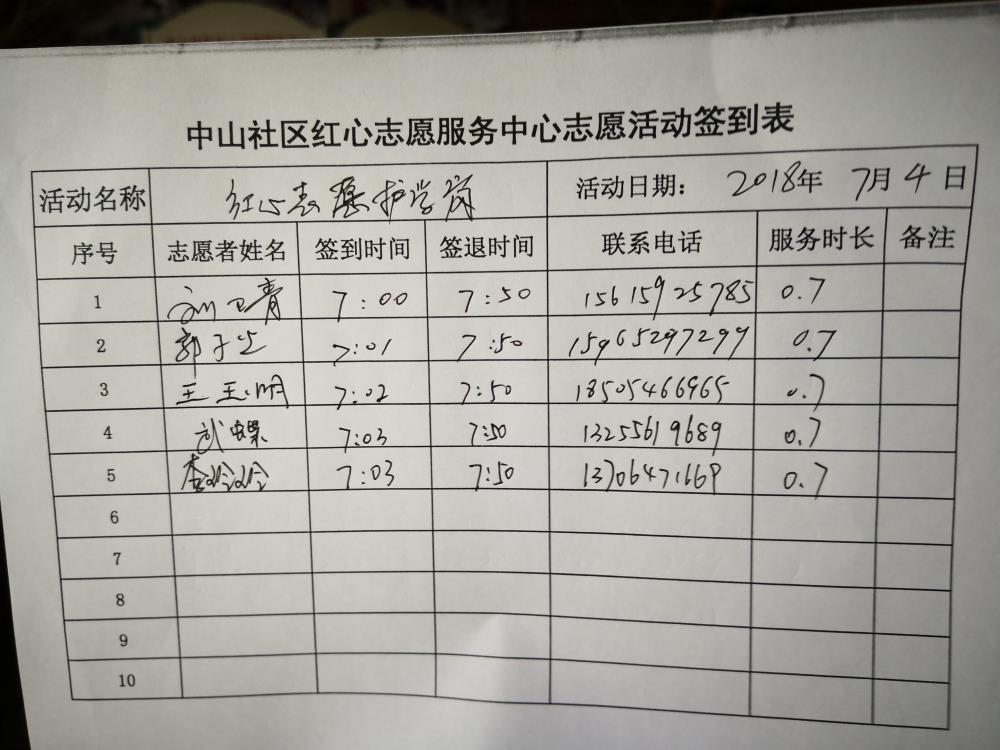 中山社区红心志愿服务中心志愿活动签到表
活动名称 红心志愿护学岗 活动日期： 2018年 7月 4日
序号 志愿者姓名 签到时间 签退时间 联系电话 服务时长 备注
1 刘卫青 7:00 7:50 15615925785 0.7
2 7:01 7:50 15965297299 0.7
3 7:02 7:50 18505466965 0.7
4 武蝶 7:03 7:50 13255619689 0.7
5 李玲玲 7:03 7:50 13706471669 0.7
6
7
8
9
10